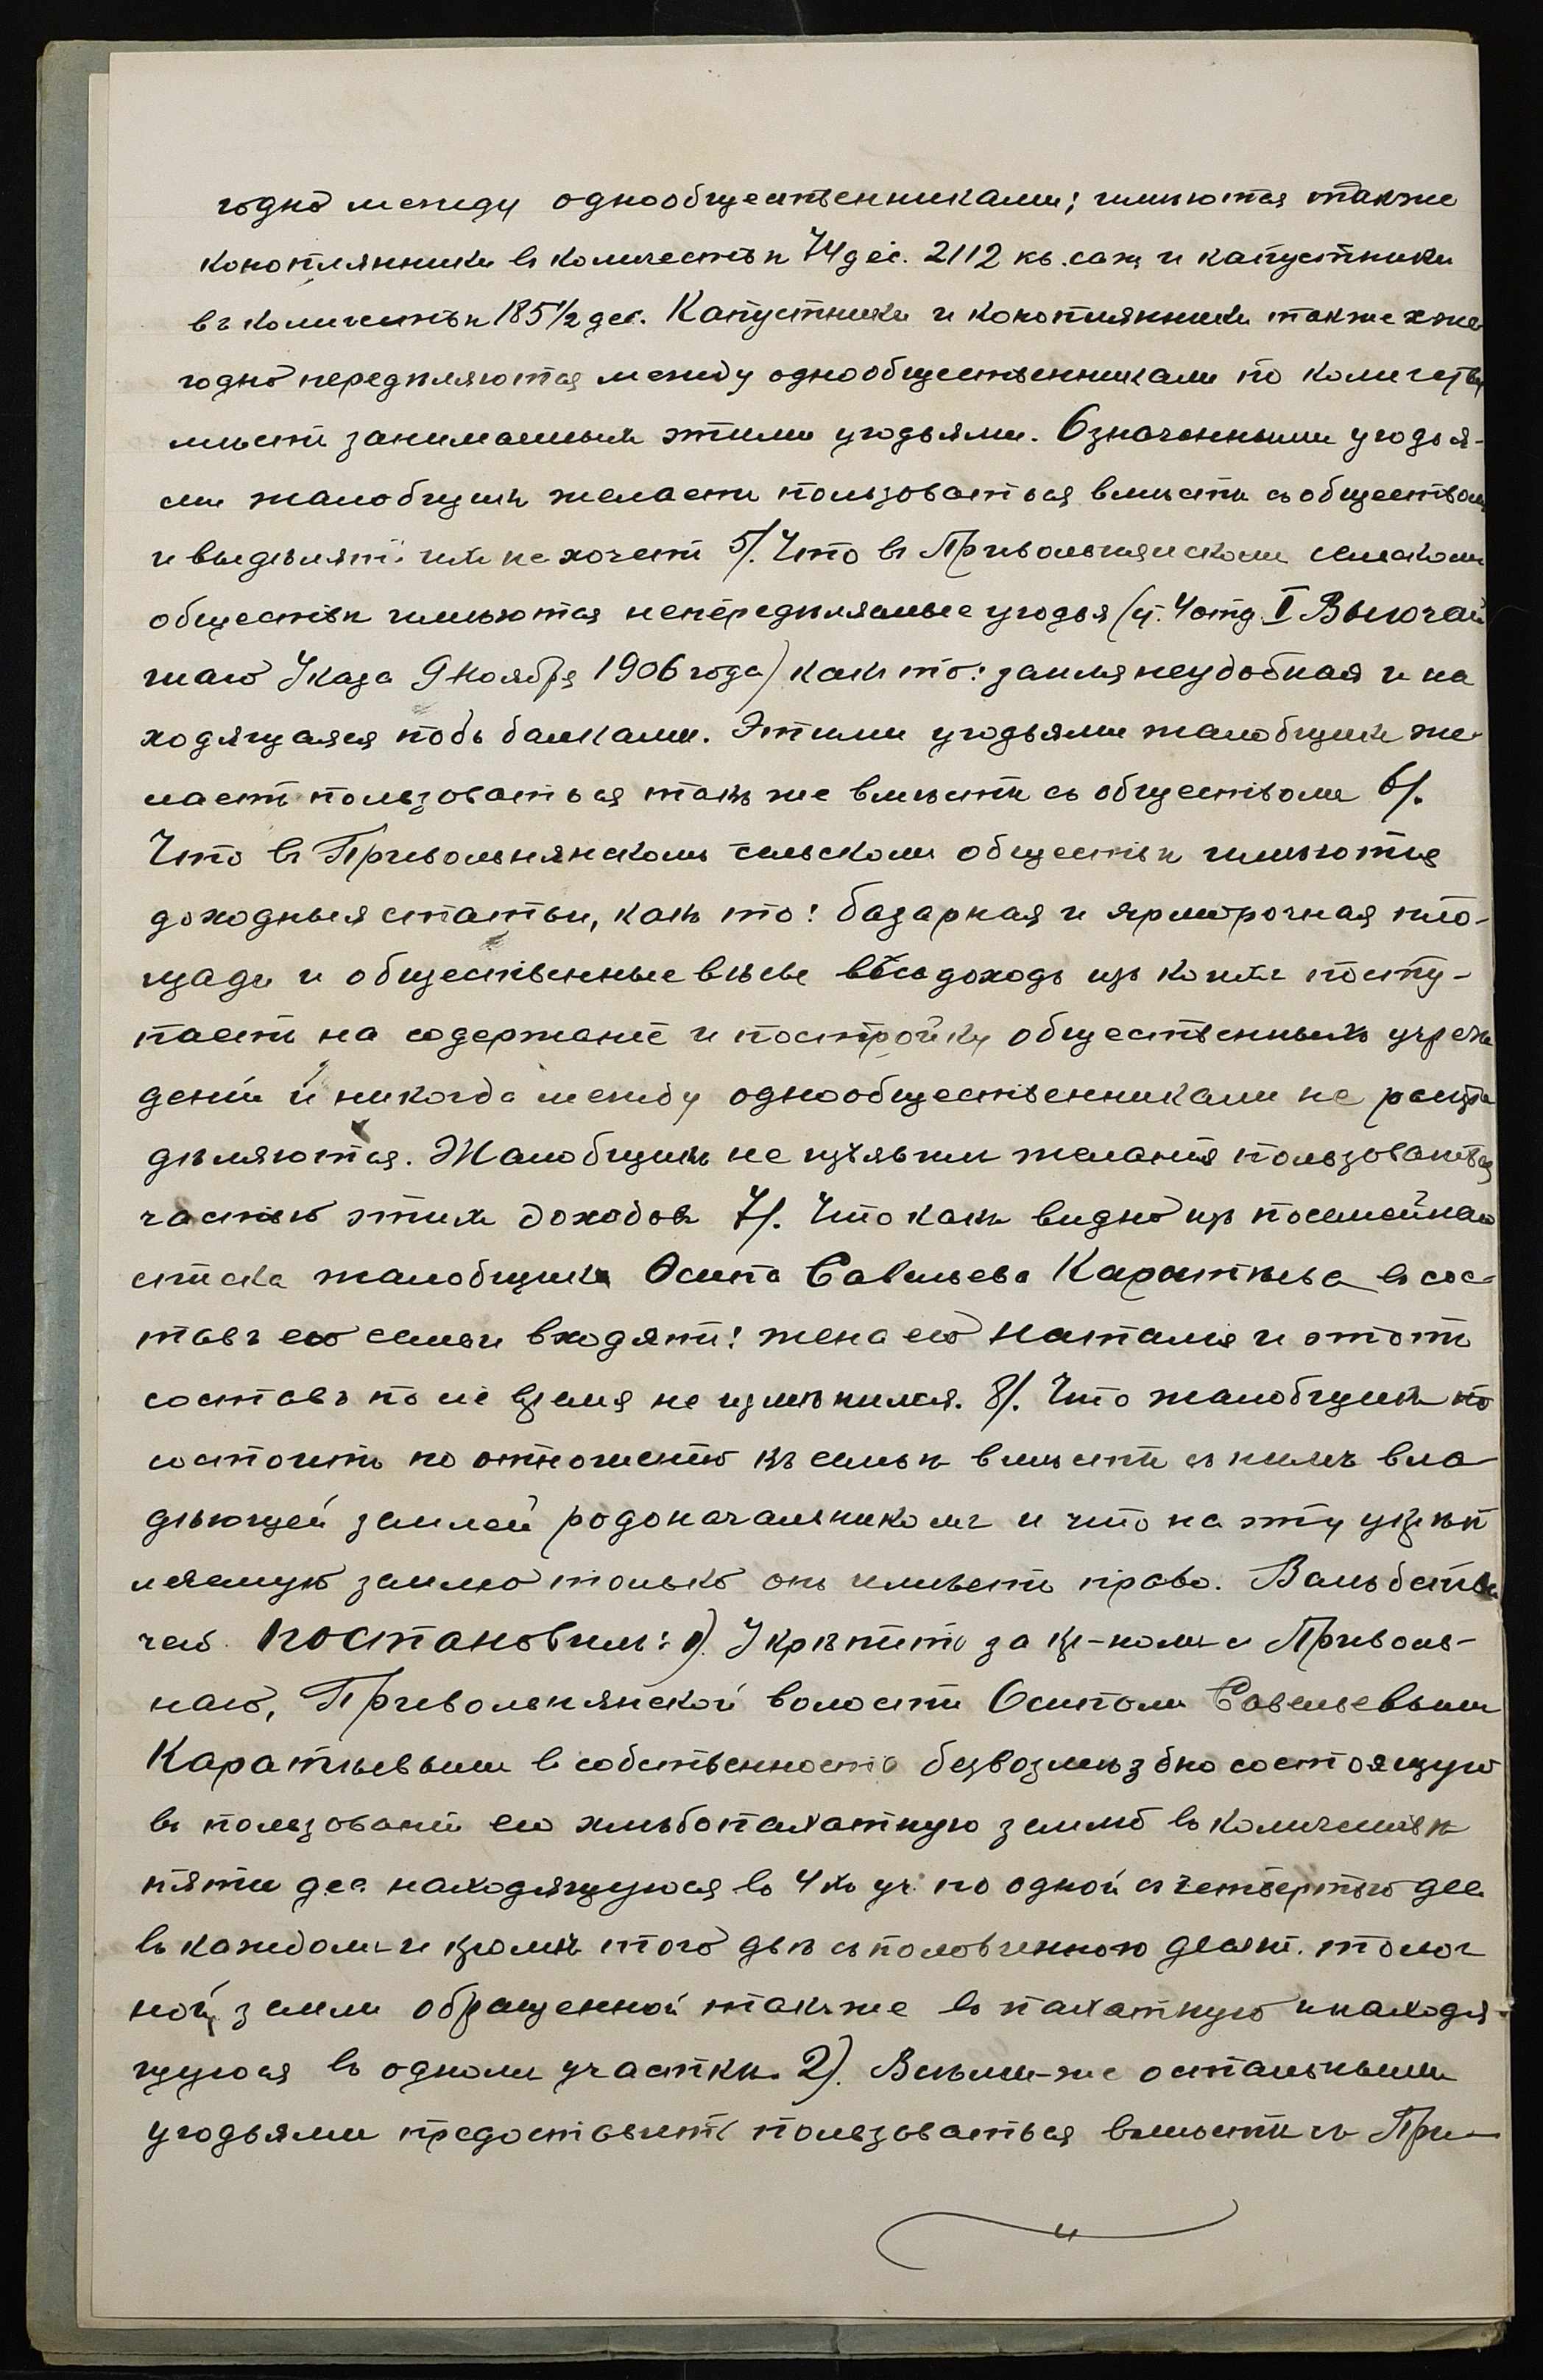 годно между однообщественниками; имѣются также
конопляники въ количествѣ 74 дес. 2112 кв. саж и капустники
въ количествѣ 185 1/2 дес. Капустники и конопляники также еже
годно передѣляются между однообщественниками по количеству
мѣстъ занимаемыхъ этими угодьями. Означенными угодья-
ми жалобщикъ желаетъ пользоваться вмѣстѣ съ обществомъ
и выдѣлять ихъ не хочетъ 5/. Что въ Привольнянскомъ сельскомъ
обществѣ имѣются непередѣляемые угодья (ст. 4 отд. I Высочай
шаго Указа 9 Ноября 1906 года) какъ то: земля неудобная и на
ходящаяся подъ балками. Этими угодьями жалобщикъ же-
лаетъ пользоваться такъ же вмѣстѣ съ обществомъ 6/.
Что въ Привольнянскомъ сельскомъ обществѣ имѣются
доходныя статьи, какъ то: базарная и ярморочная пло-
щади и общественные вѣсы весь доходъ изъ коихъ посту-
паетъ на содержаніе и постройку общественныхъ учреж
деній и никогда между однообщественниками не распре
дѣляются. Жалобщикъ не изъявилъ желанія пользоваться
частью этихъ доходовъ 7/. Что какъ видно изъ посемейнаго
списка жалобщика Осипа Савельева Каратѣева въ сос-
тавъ его семьи входятъ: жена его Наталія и этотъ
составъ по сіе время не измѣнился. 8/. Что жалобщикъ не
состоитъ по отношенію къ семьѣ вмѣстѣ съ нимъ вла-
дѣющей землей родоначальникомъ и что на эту укрѣп
ляемую землю только онъ имѣетъ право. Вслѣдствіе
чего постановилъ: 1). Укрѣпить за кр-номъ с Приволь-
наго, Привольнянской волости Осипомъ Савельевымъ
Каратѣевымъ въ собственность безвозмездно состоящую
въ пользованіи его хлѣбопахатную землю въ количествѣ
пяти дес находящуюся въ 4хъ уч. по одной съ четвертью дес
въ каждомъ и кромѣ того двѣ съ половинною десят. толоч
ной земли обращенной также въ пахатную и находя-
щуюся въ одномъ участкѣ. 2). Всѣми-же остальными
угодьями предоставить пользоваться вмѣстѣ съ При-